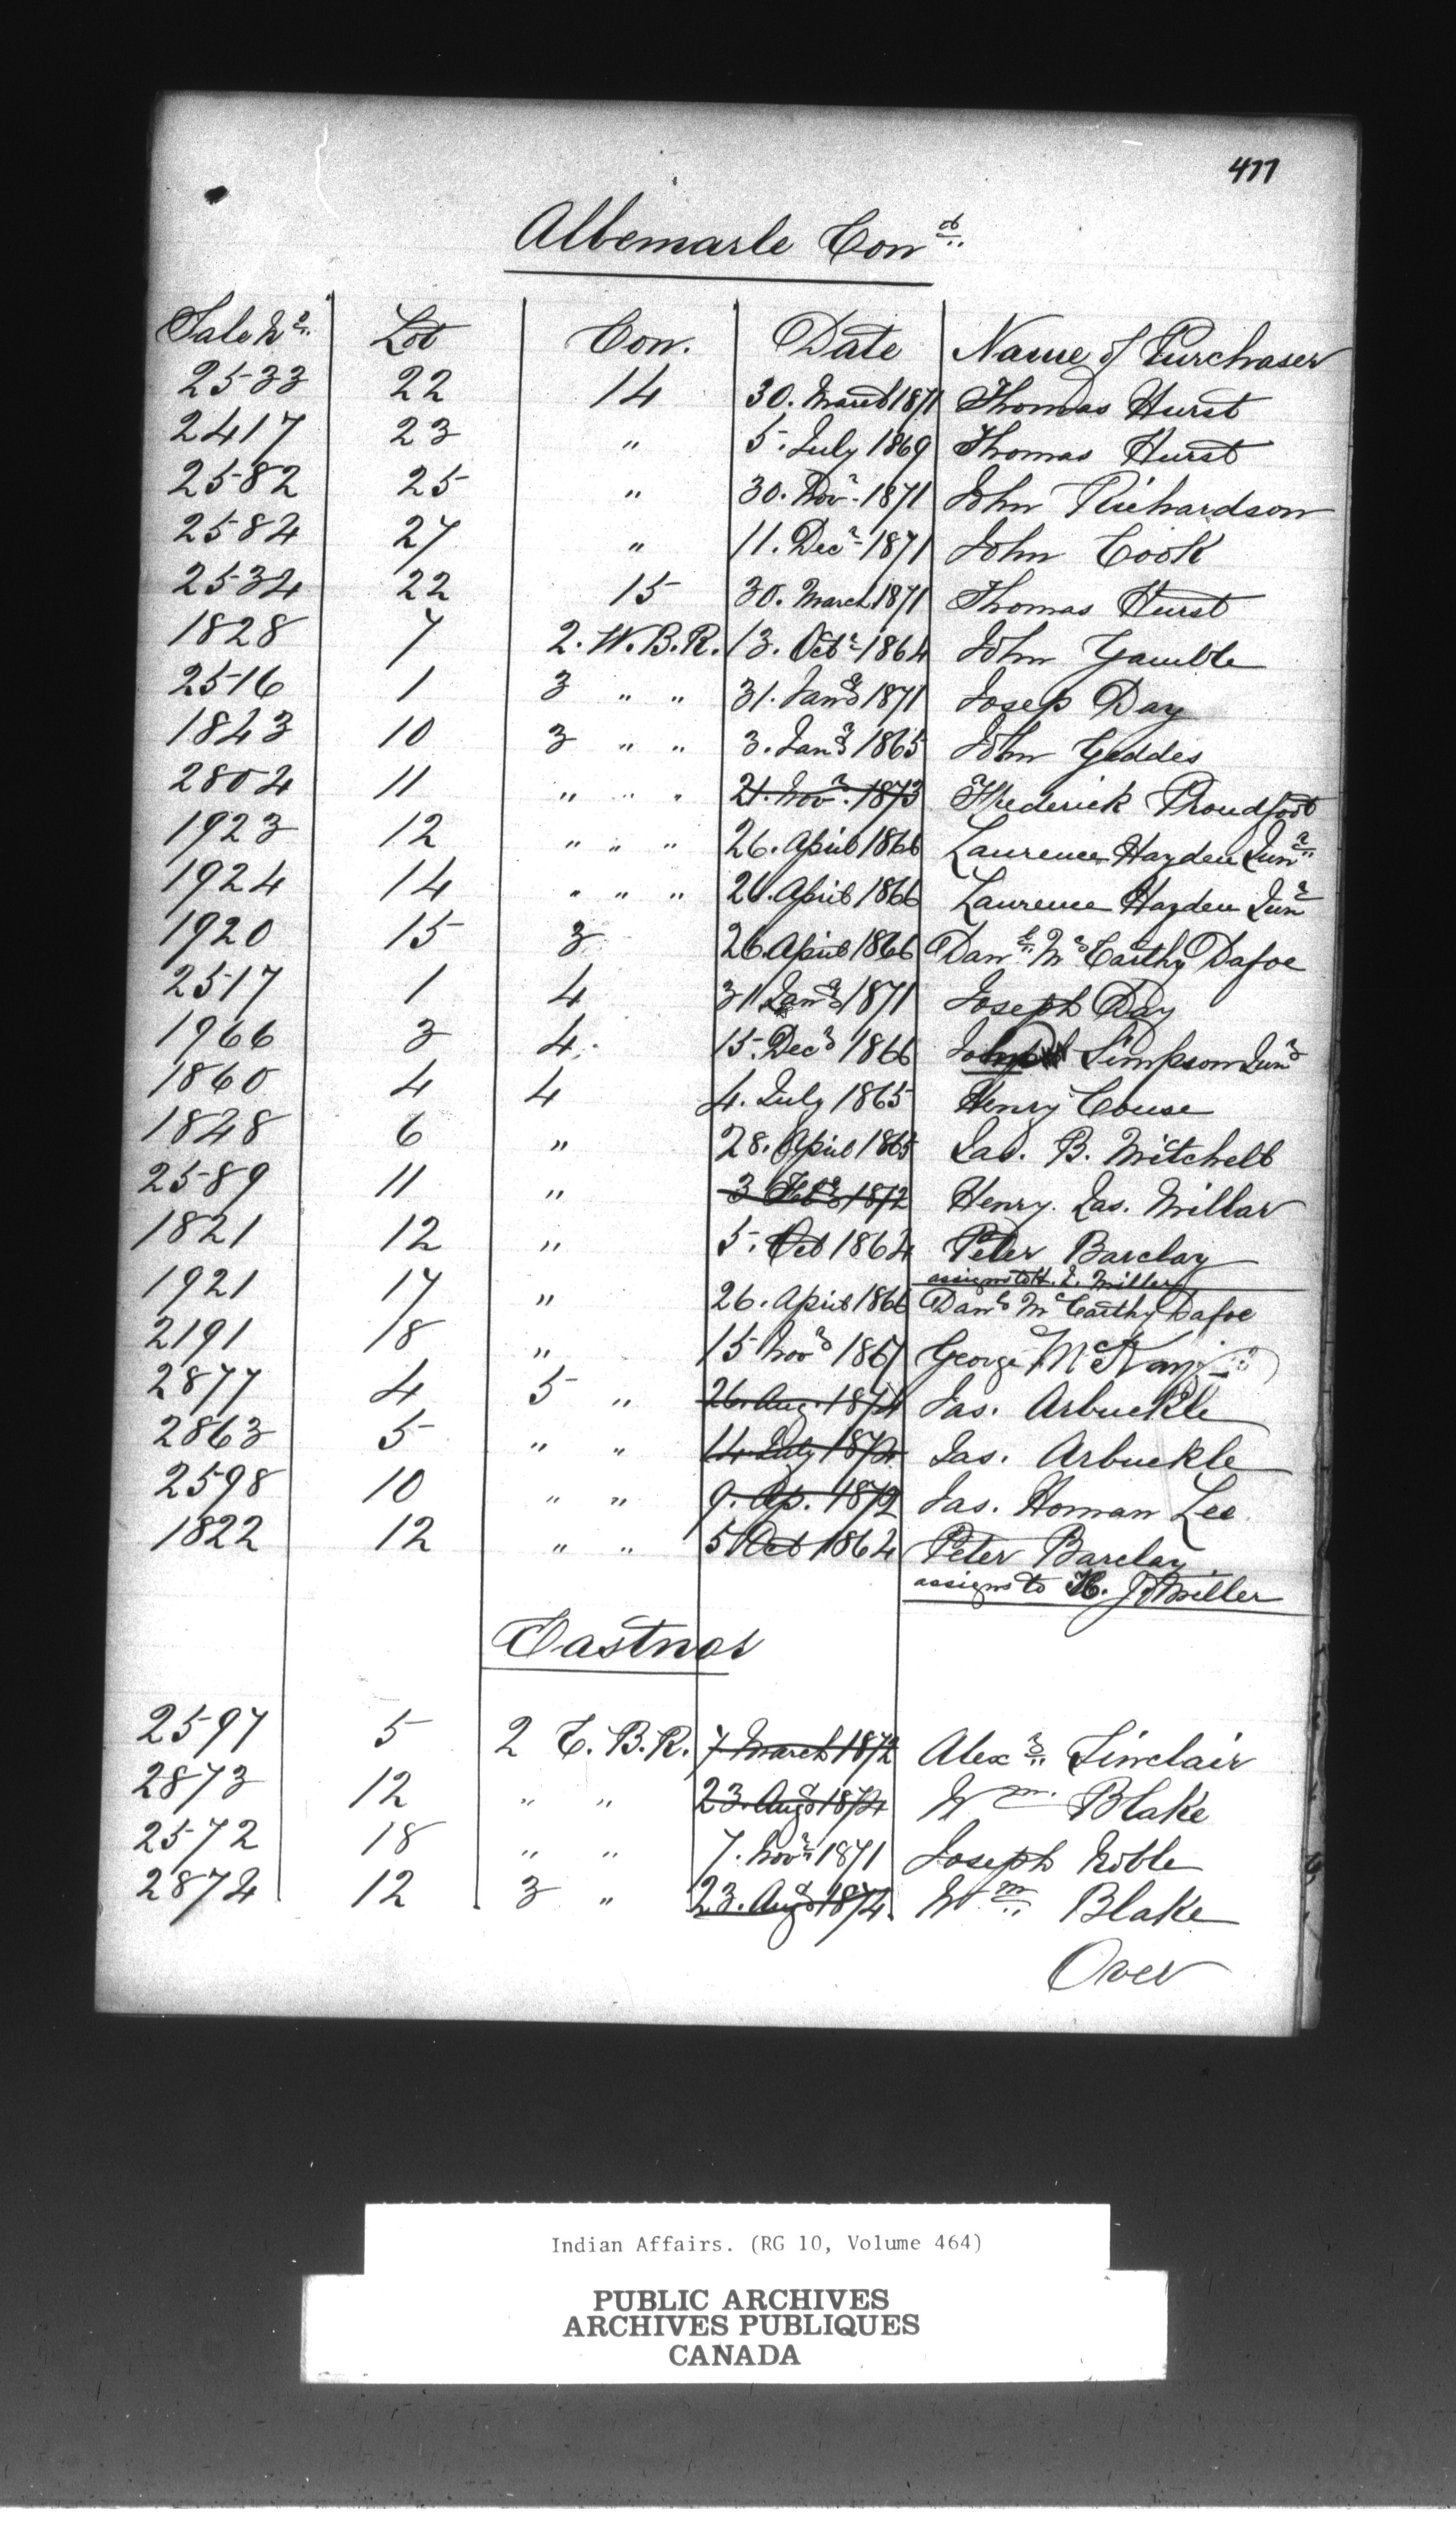 477
Albemarle Con.d
Sale No. Lot Con. Date Name of Purchaser
2533 22 14 30. March 1871 Thomas Hurst
2417 23 " 5. July 1869 Thomas Hurst
2582 25 " 30. Novr 1871 John Richardson
2584 27 " 11. Decr 1871 John Cook
2534 22 15 30. March 1871 Thomas Hurst
1828 7 2. W. B. R. 13. Octr 1864 John Gamble
2516 1 3 " " 31. Jany 1871 Josep Day
1843 10 3 " " 3. Jany 1865 John Geddes
2804 11 " " " 21. Novr. 1873 Frederick Proudfoot
1923 12 " " " 26. April 1866 Laurence Hayden Junr
1924 14 " " " 26. April 1866 Laurence Hayden Junr
1920 15 3 26 April 1866 Danl. McCarthy Dafoe
2517 1 4 31 Jany 1871 Joseph Day
1966 3 4. 15. Decr 1866 Simpson Junr
1860 4 4 4. July 1865 Henry Couse
1848 6 " 28. April 1865 Jas. B. Mitchell
2589 11 " 3 Feby 1872 Henry. Jas. Millar
1821 12 " 5. Oct 1864 Peter Barclay
assigns to H. J. Miller
1921 17 " 26. April 1866 Danl McCarthy Dafoe
2191 18 " 15 Novr 1867 George
2877 4 5 " 26. Aug. 1874 Jas. Arbuckle
2863 5 " " 14. July 1874 Jas. Arbuckle
2598 10 " " 9. Ap. 1872 Jas. Homan Lee
1822 12 " " 5 Oct 1864 Peter Barclay
assigns to H. J. Miller
Eastnor
2597 5 2 E. B. R. 7 March 1872 Alexr Sinclair
2873 12 " " 23. Augt 1874 Wm. Blake
2572 18 " " 7. Novr 1871 Joseph Noble
2874 12 3 " 23. Augt 1874. Wm Blake
Over
Indian Affairs. (RG 10, Volume 464)
PUBLIC ARCHIVES
ARCHIVES PUBLIQUES
CANADA